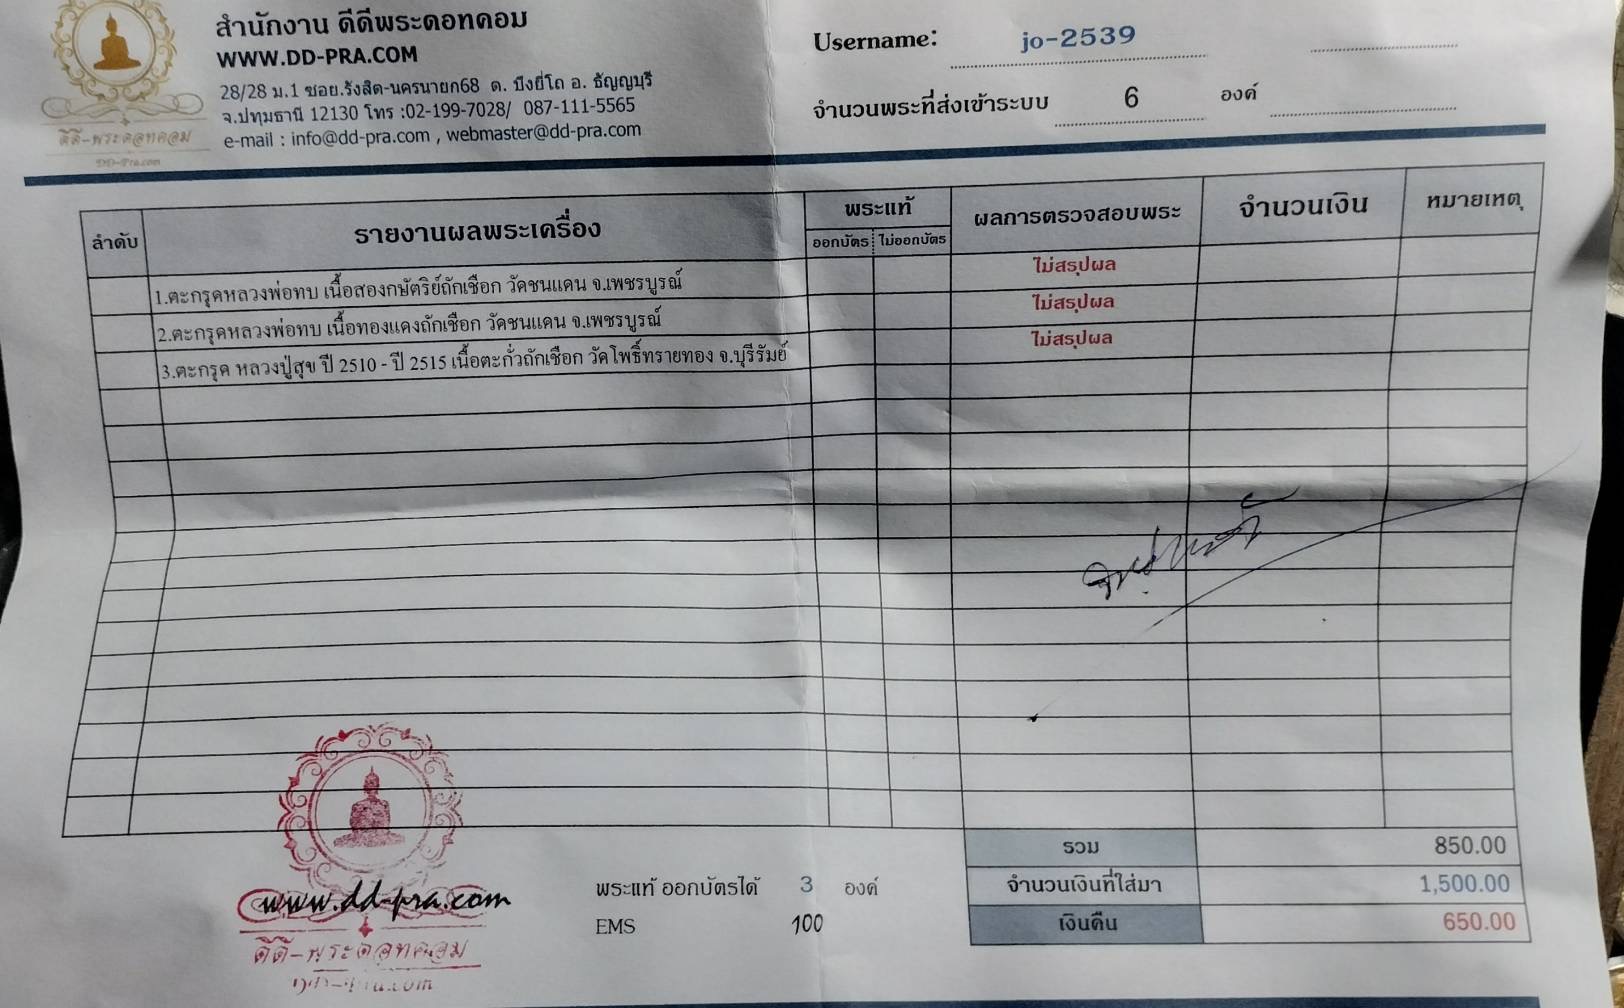 สำนักงาน ดีดีพระดอทคอม
WWW.DD-PRA.COM
28/28 ม.1 ซอย.รังสิต-นครนายก68 ต. บึงยี่โถ อ. ธัญญบุรี
จ.ปทุมธานี 12130 โทร :02-199-7028/ 087-111-5565
e-mail : info@dd-pra.com , webmaster@dd-pra.com
ดีดี-พระดอทคอม
DD-Pra.com
Username: jo-2539
จำนวนพระที่ส่งเข้าระบบ 6 องค์
ลำดับ รายงานผลพระเครื่อง พระแท้ ผลการตรวจสอบพระ จำนวนเงิน หมายเหตุ
ออกบัตร ไม่ออกบัตร
1.ตะกรุดหลวงพ่อทบ เนื้อสองกษัตริย์ถักเชือก วัดชนแดน จ.เพชรบูรณ์ ไม่สรุปผล
2.ตะกรุดหลวงพ่อทบ เนื้อทองแดงถักเชือก วัดชนแดน จ.เพชรบูรณ์ ไม่สรุปผล
3.ตะกรุด หลวงปู่สุข ปี 2510 - ปี 2515 เนื้อตะกั่วถักเชือก วัดโพธิ์ทรายทอง จ.บุรีรัมย์ ไม่สรุปผล
รวม 850.00
พระแท้ ออกบัตรได้ 3 องค์ จำนวนเงินที่ใส่มา 1,500.00
EMS 100 เงินคืน 650.00
www.dd-pra.com
ดีดี-พระดอทคอม